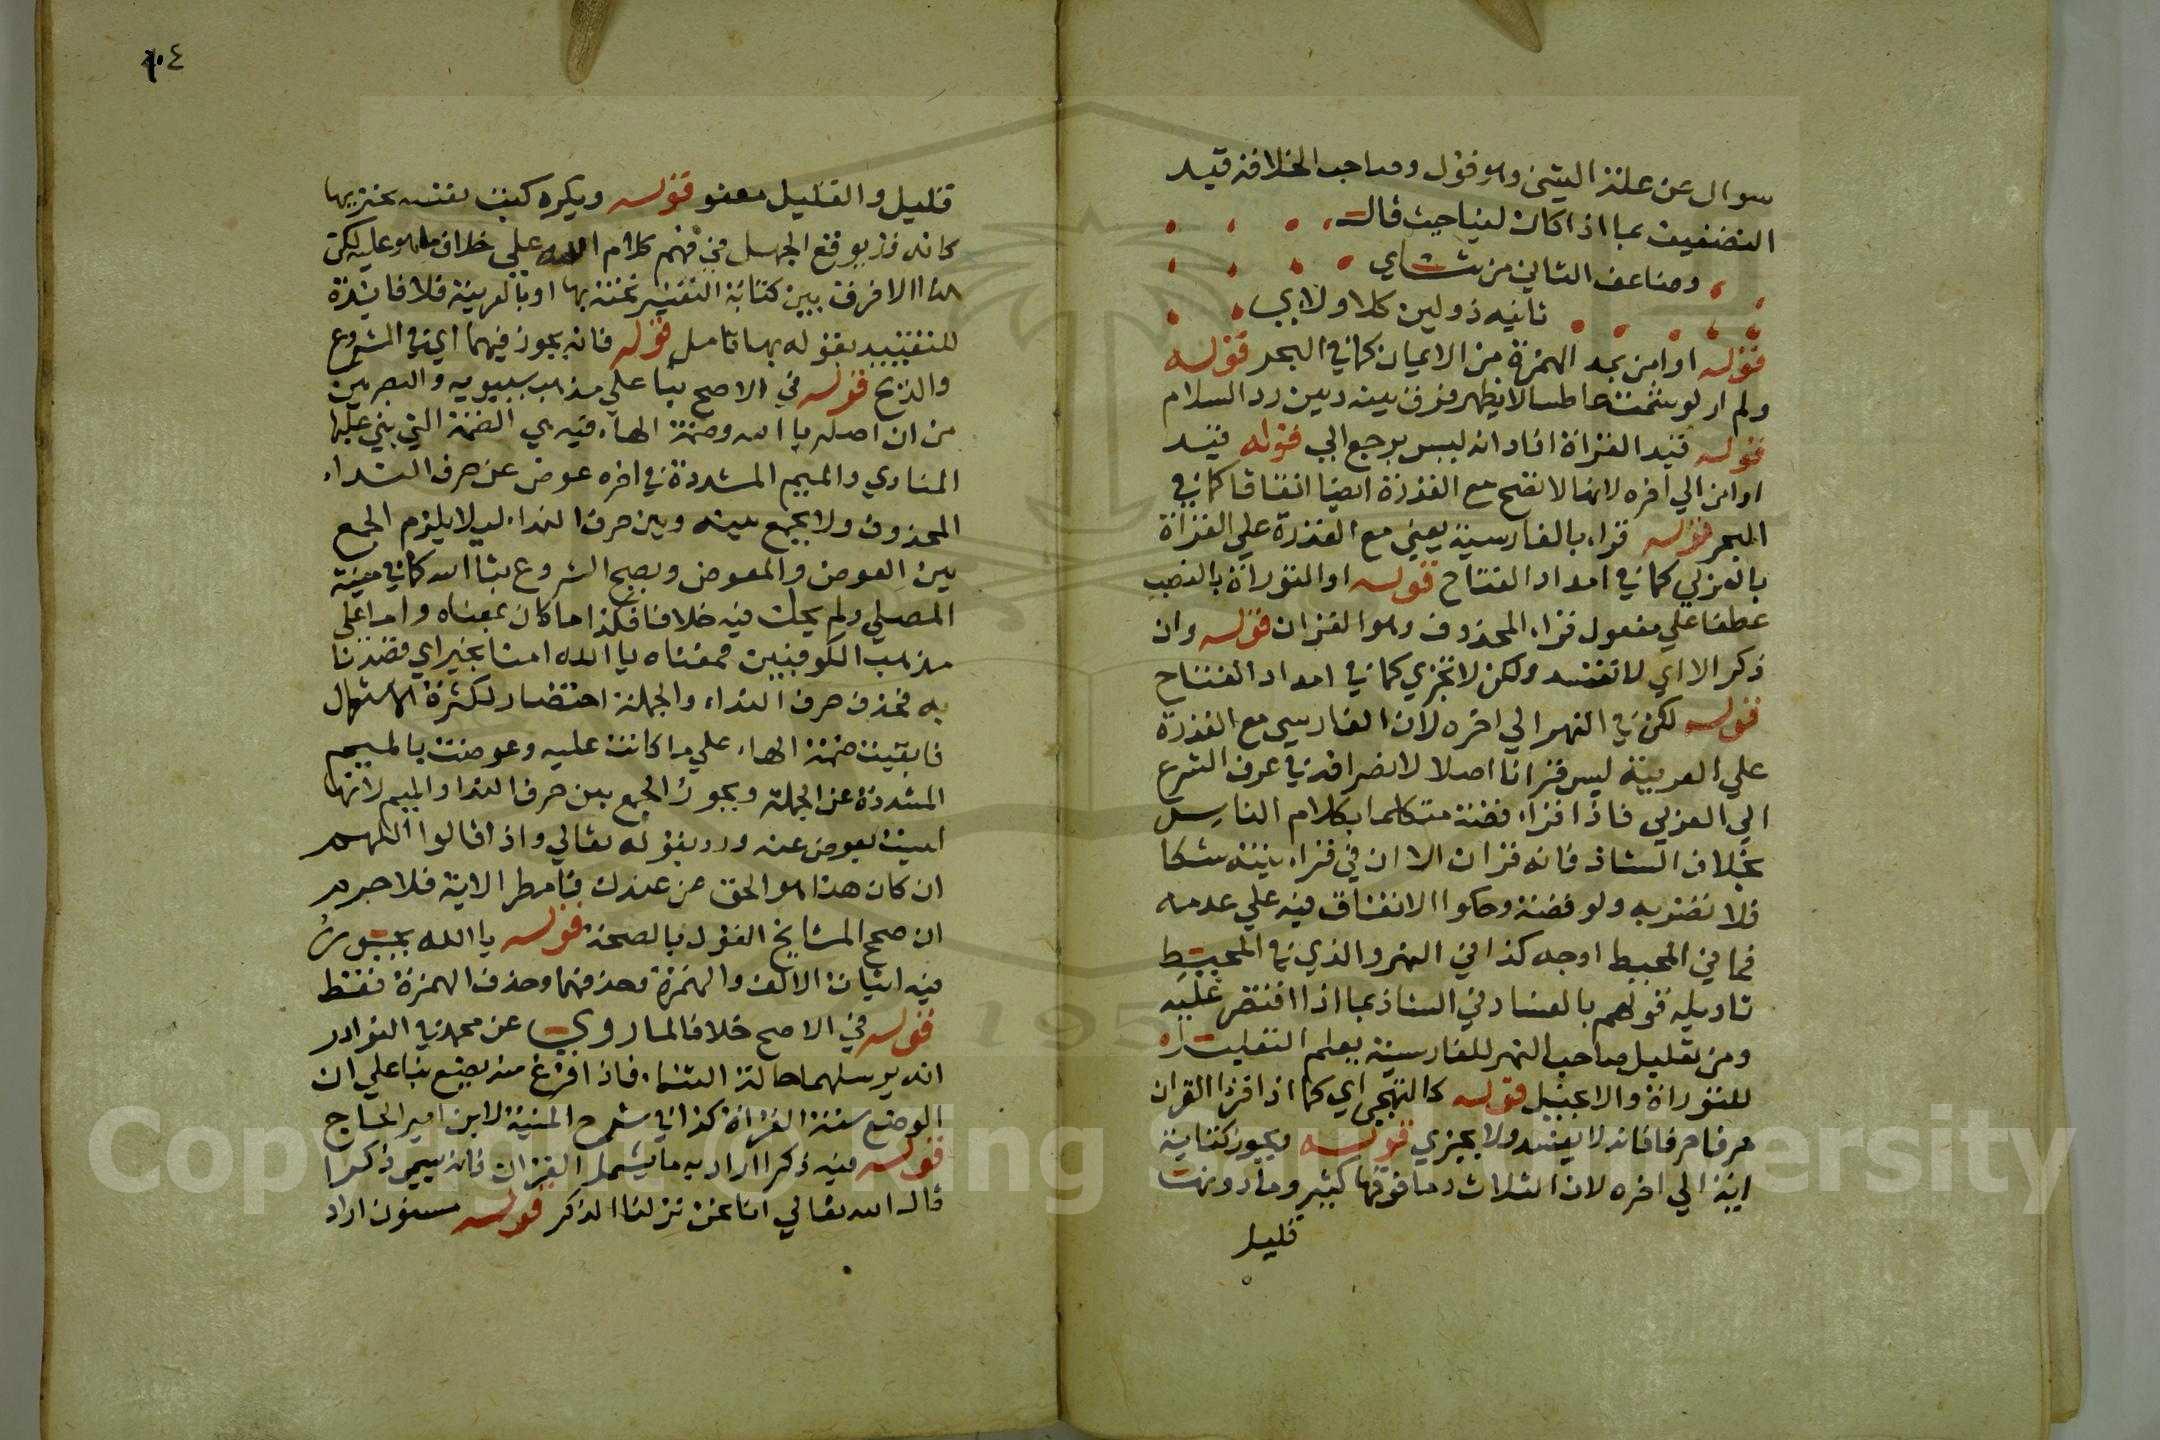 سوال عن علة الشي وهو قول وصاحب الخلاصة قيد
التضعيف بما اذا كان لينا حيث قال
ومضاعف الثاني من ثنائي
ثانيه ذو لين كلا ولاءي
قوله او امن بمد الهمزة من الايمان كما في البحر قوله
ولم ار لو شمت عاطسا لا يظهر فرق بينه وبين رد السلام
قوله قيد القراة افاد انه ليس يرجع الي قوله قيد
او امن الي اخره لانها لا تصح مع القدرة ايضا اتفاقا كما في
البحر قوله قراء بالفارسية يعني مع القدرة علي القراة
بالعربي كما في امداد الفتاح قوله او التوراة بالنصب
عطفا علي مفعول قراء المحذوف وهو القران قوله وان
ذكر الا اي لا تفسد ولكن لا تجزي كما في امداد الفتاح
قوله لكن في النهر الي اخره لان الفارسي مع القدرة
علي العربية ليس قرانا اصلا لانصرافه في عرف الشرع
الي العربي فاذا قراء قصة متكلما بكلام الناس
بخلاف الشاذ فانه قران الا ان في قرانيته شكا
فلا تفسد به ولو قصة وحكوا الاتفاق فيه علي عدمه
فما في المحيط اوجه كذا في النهر والذي في المحيط
تاويله قولهم بالفساد في الشاذ بما اذا اقتصر عليه
ومن تعليل صاحب النهر للفارسية يعلم التعليل
للتوراة والانجيل قوله كالتهجي اي كما اذا قرا القران
حرفا حرفا فانه لا يفسد ولا يجزي قوله ويجوز كتابة
اية الي اخره لان الثلاث وما فوقها كثير وما دونها
قليل
١٠٤
قليل والقليل معفو قوله ويكره كتب تفسيره تحته بها
كانه قد يوقع الجهل في فهم كلام الله علي خلاف ما هو عليه لكن
هذا الا فرق بين كتابة التفسير تحته بها او بالعربية فلا فايدة
للتقييد بقوله بها تامل قوله فانه يجوز فيهما اي في الشروع
والذبح قوله في الاصح بنا علي مذهب سيبويه والبصريين
من ان اصله يا الله وضمة الهاء فيه هي الضمة التي بني عليها
المنادي والميم المشددة في اخره عوض عن حرف النداء
المحذوف ولا يجمع بينه وبين حرف النداء ليلا يلزم الجمع
بين العوض والمعوض ويصح الشروع بيا الله كما في منية
المصلي ولم يحك فيه خلافا فكذا ما كان بمعناه واما علي
مذهب الكوفيين فمعناه يا الله امنا بخير اي قصدنا
به فحذف حرف النداء والجملة اختصار لكثرة الاستعمال
فابقيت ضمة الهاء علي ما كانت عليه وعوضت بالميم
المشددة عن الجملة ويجوز الجمع بين حرف الندا والميم لانها
ليست بعوض عنه ورد بقوله تعالي واذ قالوا اللهم
ان كان هذا هو الحق من عندك فامطر الاية فلا جرم
ان صحح المشايخ القول بالصحة قوله يا الله يجوز
فيه اثبات الالف والهمزة وحذفهما وحذف الهمزة فقط
قوله في الاصح خلافا لما روي عن محمد في النوادر
انه يرسلهما حالة الثناء فاذا فرغ منه يضع بنا علي ان
الوضع سنة القراة كذا في شرح المنية لابن امير الحاج
قوله فيه ذكر اراد به ما يشمل القران فانه يسمي ذكرا
قال الله تعالي انا نحن نزلنا الذكر قوله مسنون اراد